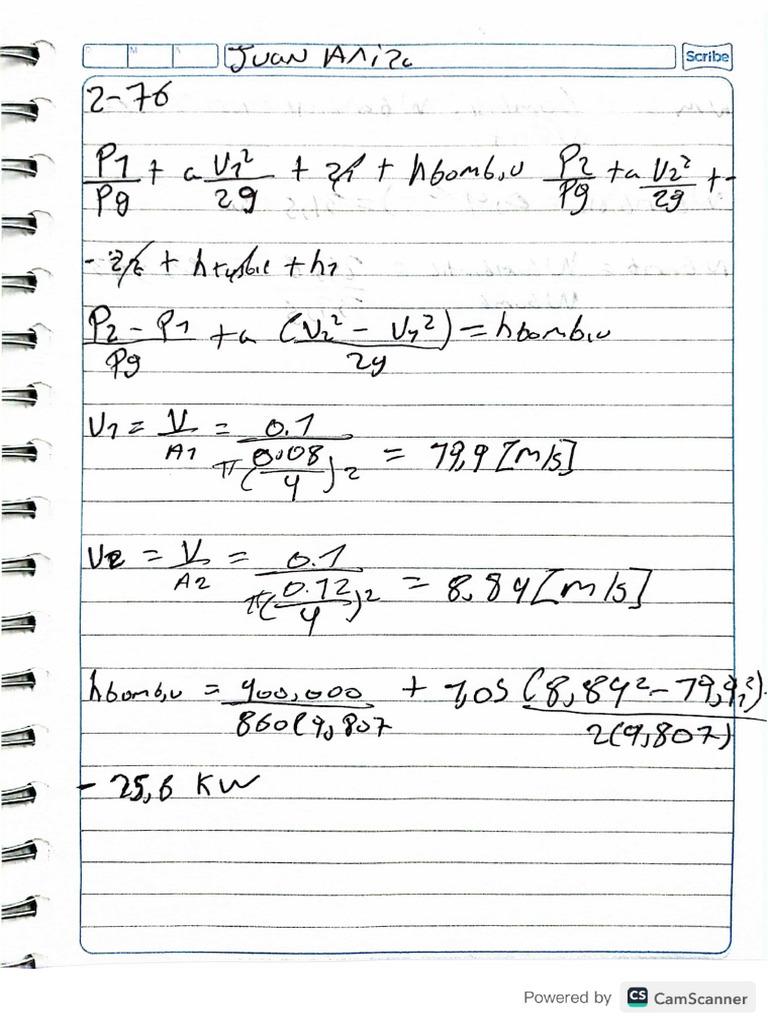 Juan Ariza
Scribe
2-76
P1/ρg + a V1²/2g + z1 + hbomb,u P2/ρg + a V2²/2g +-
- z2 + hturbi + h1
P2 - P1/ρg + a (V2² - V1²)/2g = hbomb,u
V1 = V/A1 = 0.1/π(0.08/4)² = 19,9 [m/s]
V2 = V/A2 = 0.1/π(0.12/4)² = 8,84 [m/s]
hbomb,u = 400,000/860(9,807 + 1,05 (8,84² - 19,9²)/2(9,807)
- 25,6 KW
Powered by CS CamScanner